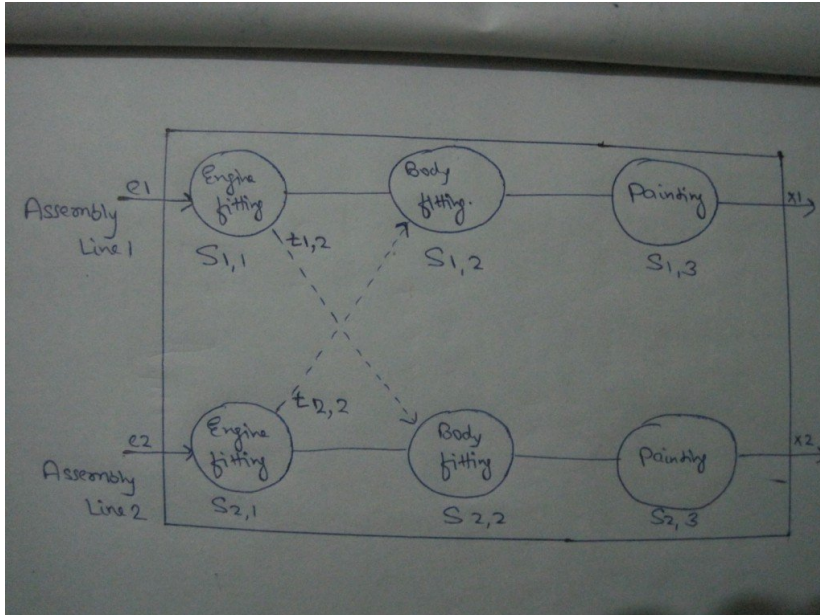 e1
Assembly
Line1
Engine
fitting
S1,1
t1,2
Body
fitting.
S1,2
Painting
S1,3
x1
e2
Assembly
Line2
Engine
fitting
S2,1
t2,2
Body
fitting
S2,2
Painting
S2,3
x2